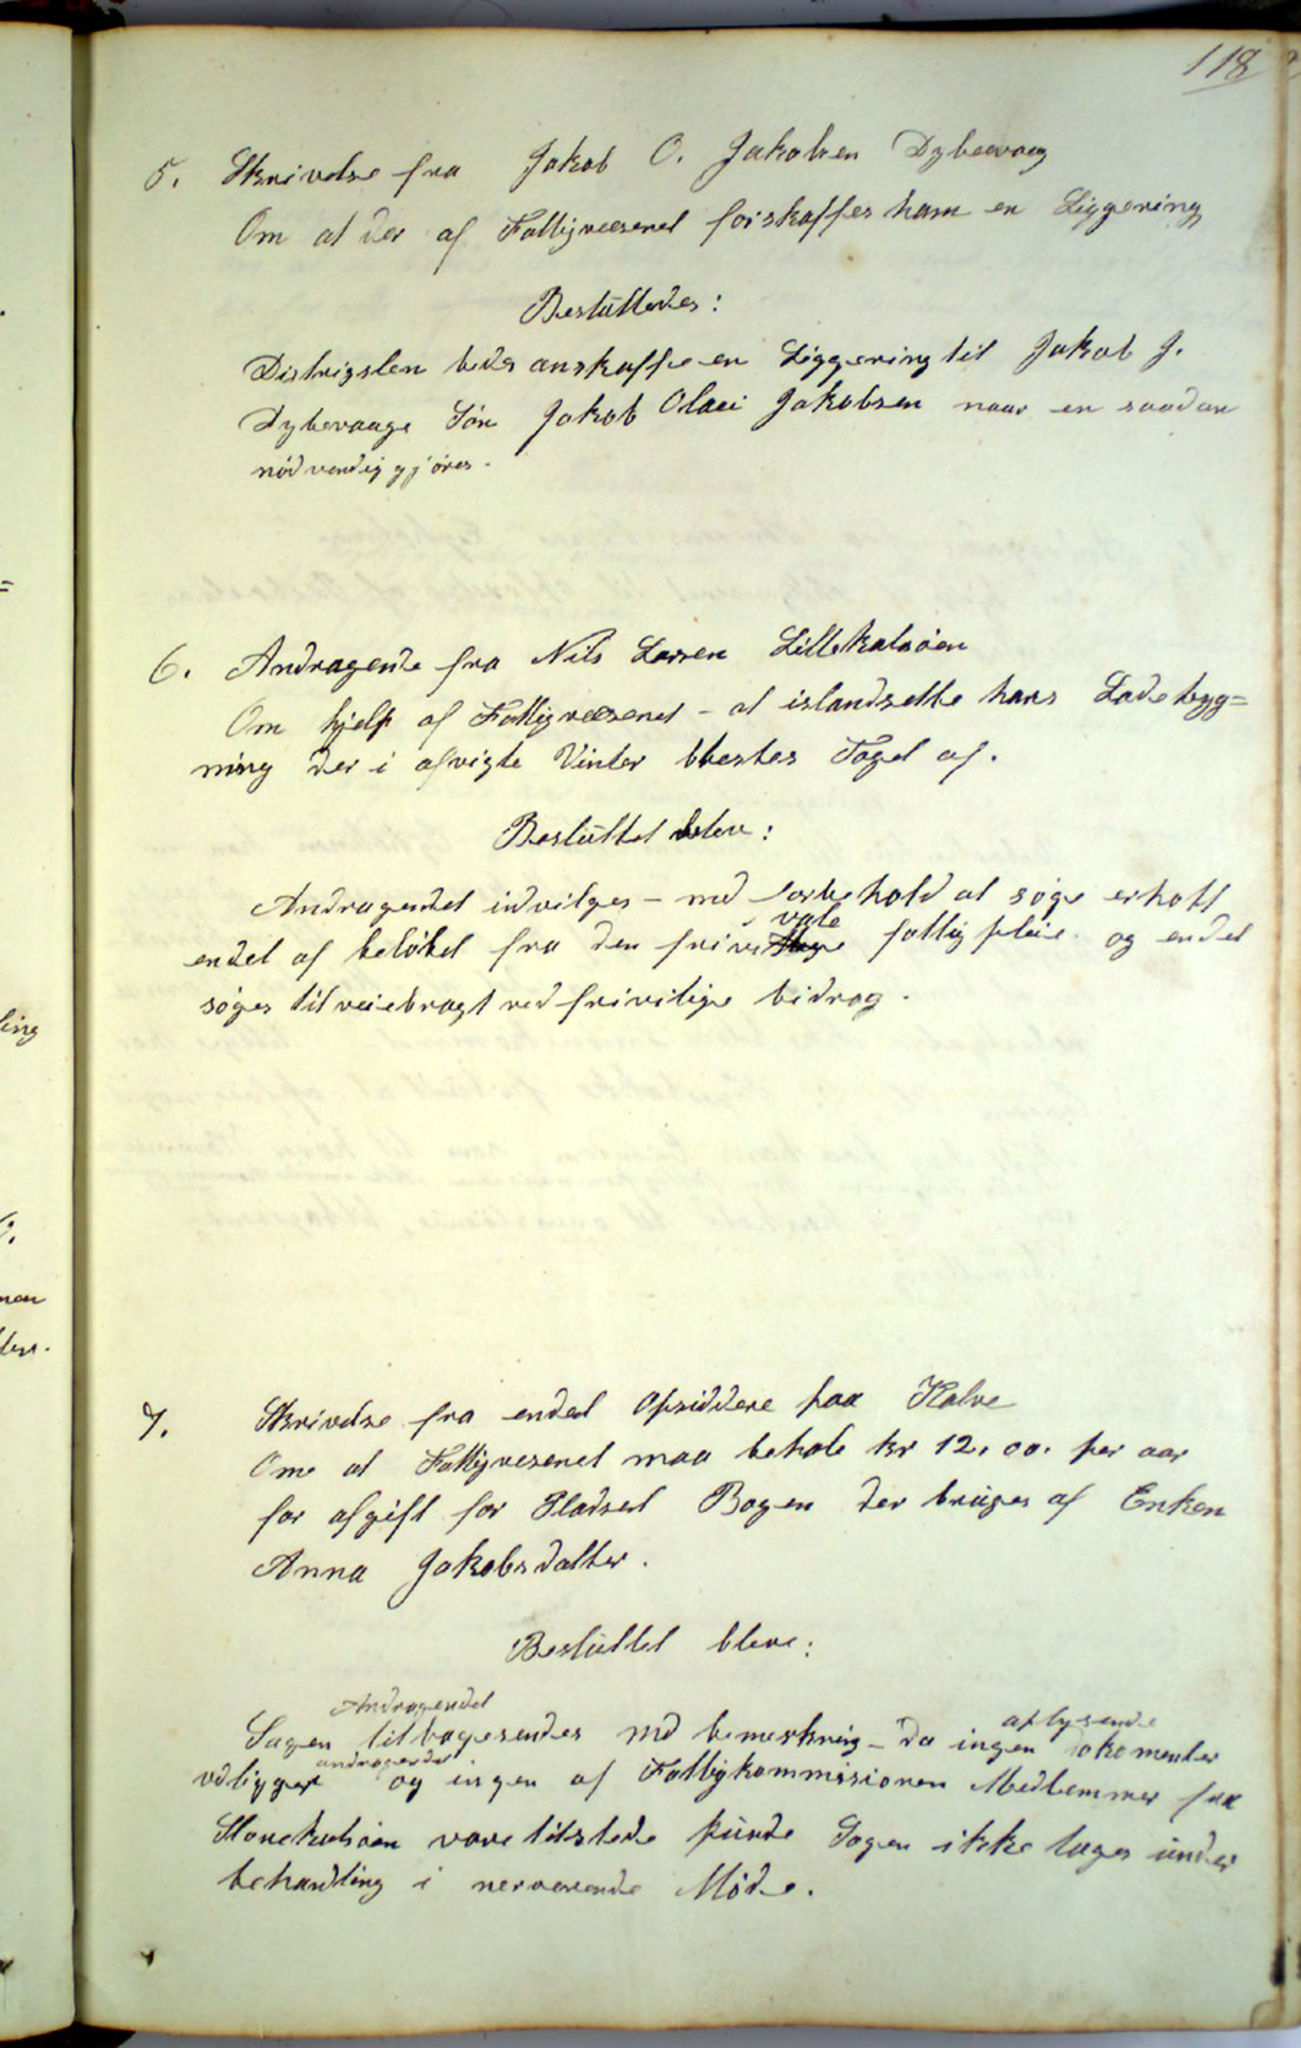 118
5. Skrivelse fra Jakob O. Jakobsen Dybevaag
Om at der af Fattigvæsenet forskaffes ham en Liggering
Besluttedes:
Distrigslen bedes anskaffe en Liggering til Jakob J.
Dybevaage Søn Jakob Olaei Jakobsen naar en saadan
nødvendig gjøres.
6. Andragende fra Nils Larsen Lillekalsøen
Om hjelp af Fattigvæsenet - at istandsette hans Ladebyg=
ning der i afvigte Vinter blestes Taget af.
Besluttet blev:
Andragendet indvilges - med forbehold at søge erholt
vate
endel af beløbet fra den pri fattigpleie og endel
søges tilveiebragt ved frivilige bidrag.
7. Skrivelse fra endel Opsiddere paa Kalve
Om at Fattigvesenet maa betale kr 12.00. per aar
for afgift for Pladset Bogen der bruges af Enken
Anna Jakobsdatter.
Besluttet bleve:
Andragendet oplysende
Sagen tilbagesendes med bemerkning - da ingen dokomenter
andragendet
vdligger og ingen af Fattigkommisionen Medlemmer fra
Storekalsøen vare tilstede kunde Sagen ikke tages under
behandling i nerværende Møde.